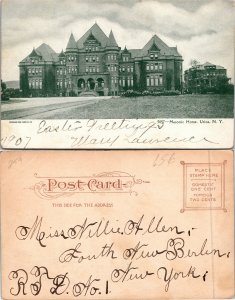 Masonic Home, Utica, N. Y.
Easter Greetings
1907 Mary Lawrence
156
PLACE
STAMP HERE
DOMESTIC
ONE CENT
FOREIGN
TWO CENTS
Post-Card
THIS SIDE FOR THE ADDRESS
Miss Nillie Allen,
South New Berlin,
R.F.D. No. 1 New York,